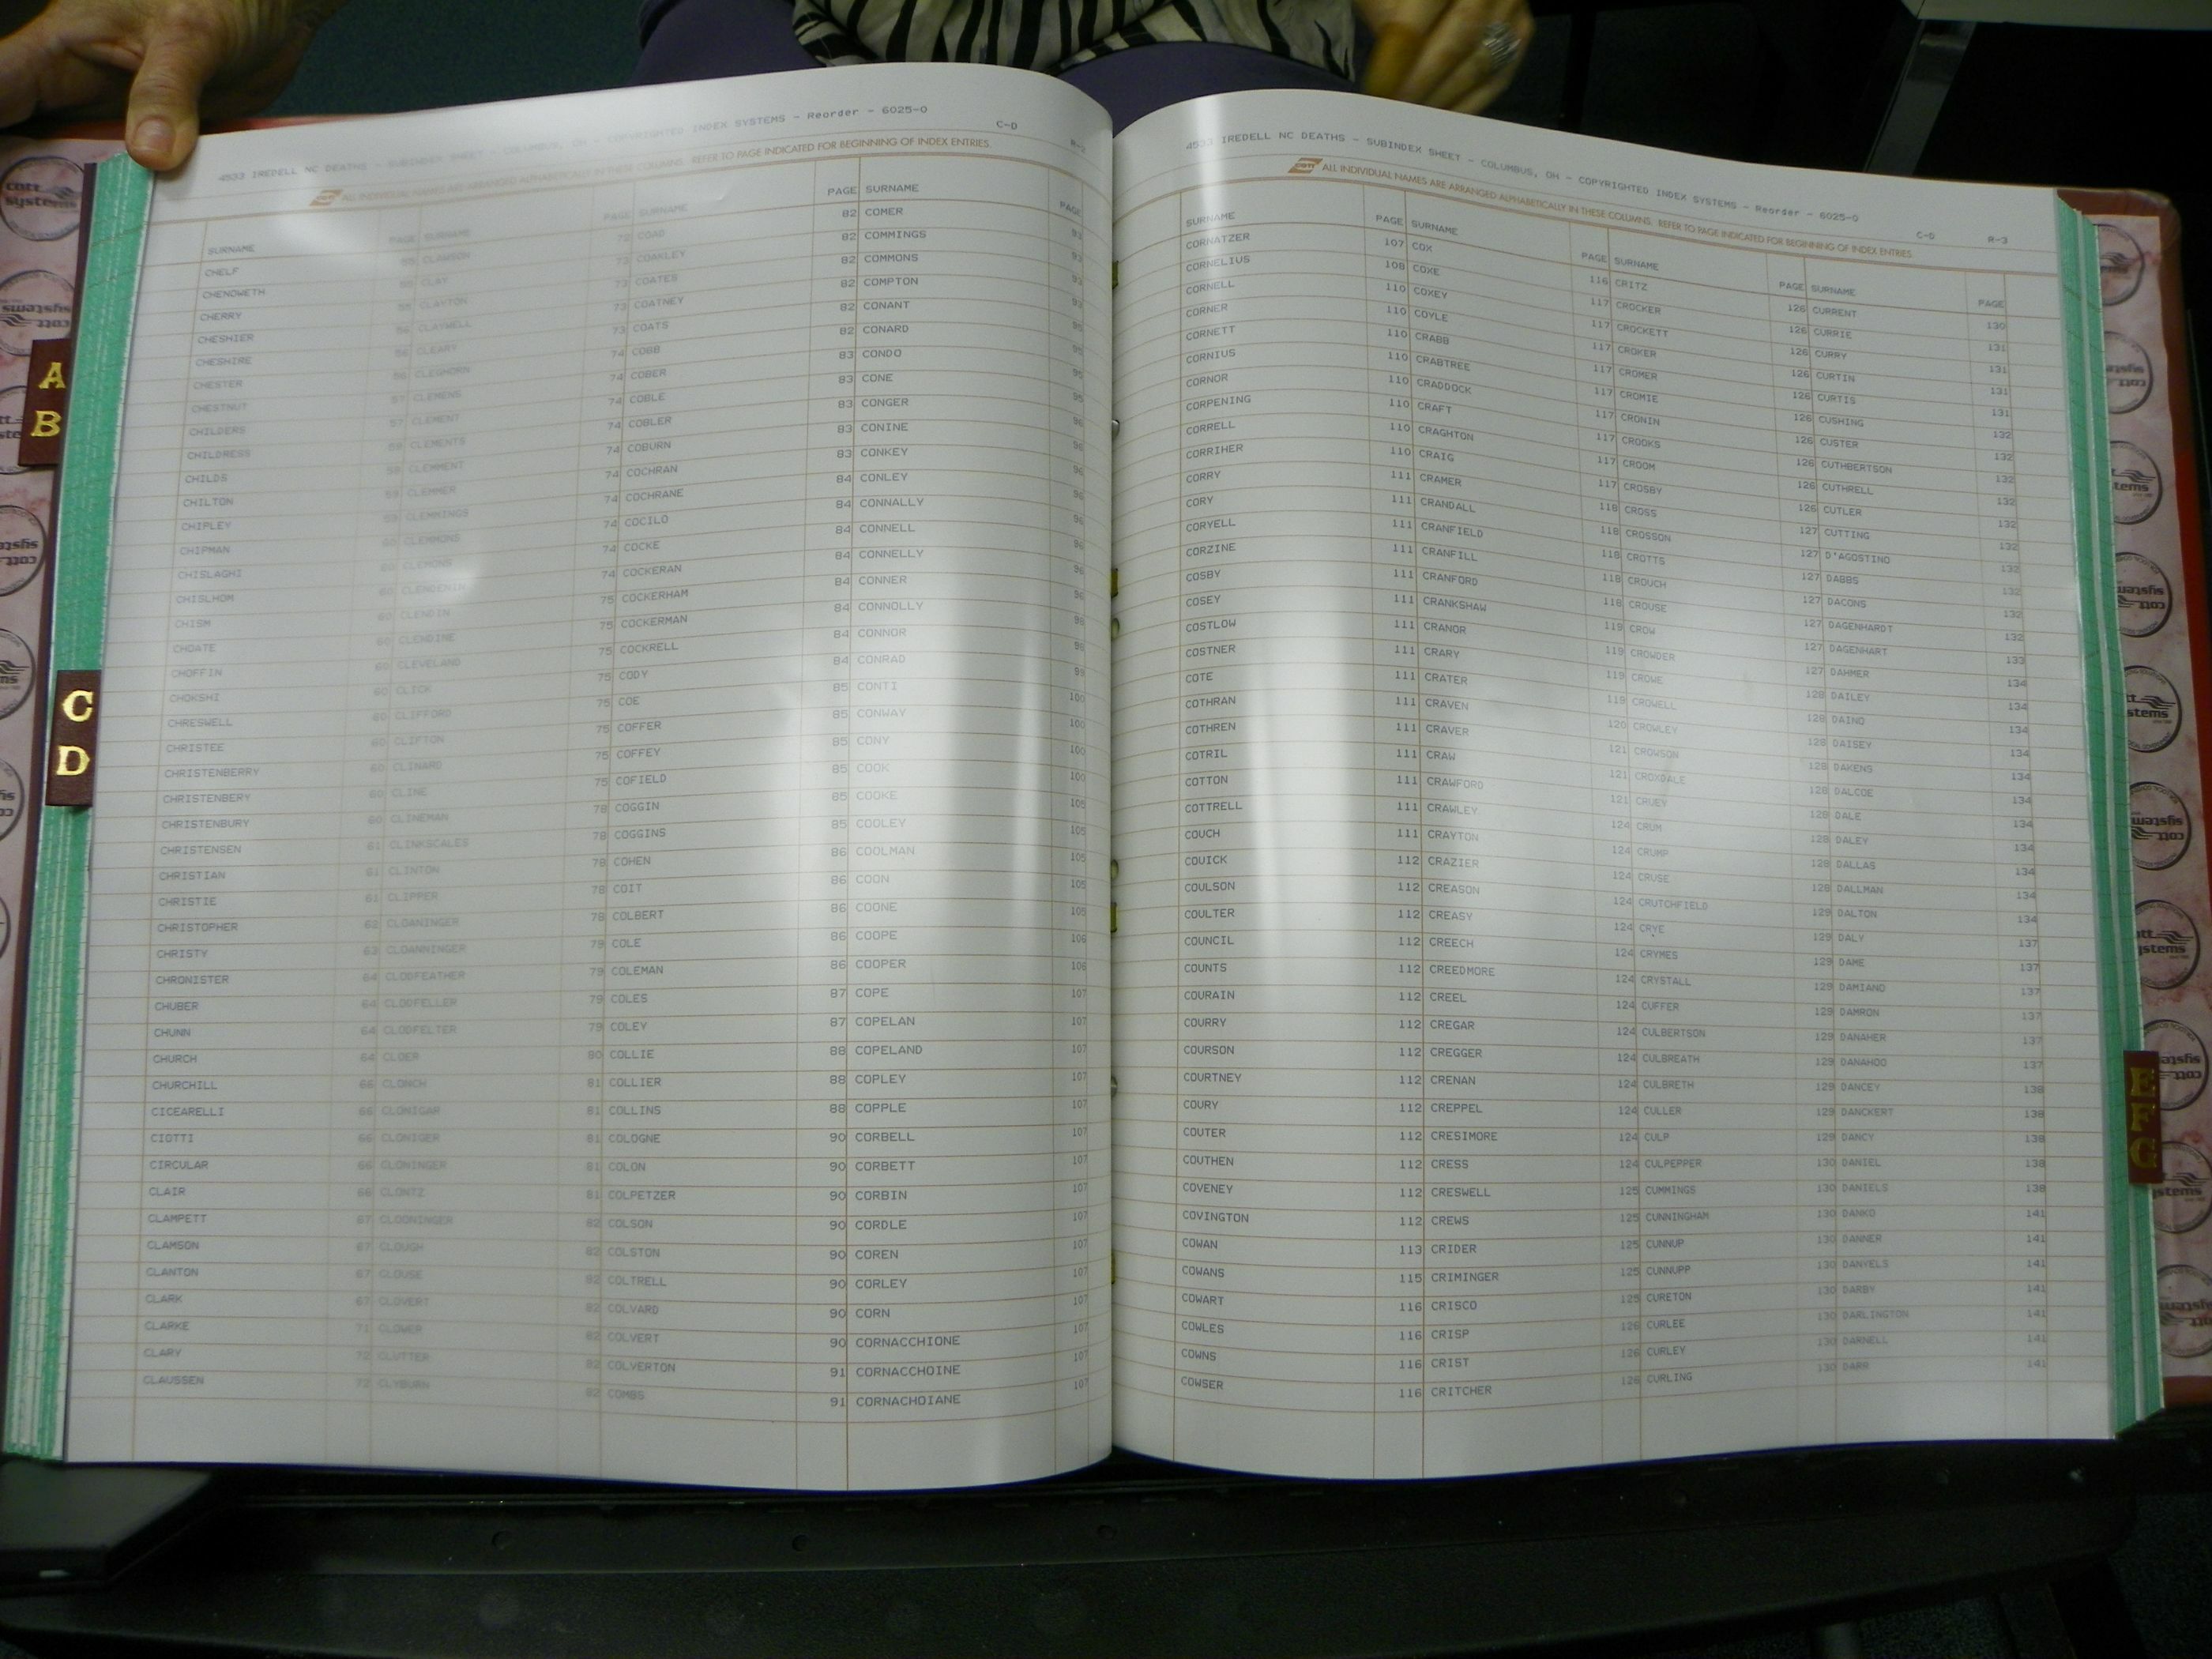 4533 IREDELL NC DEATHS - SUBINDEX SHEET - COLUMBUS, OH - COPYRIGHTED INDEX SYSTEMS - Reorder - 6025-0
C-D
COTT ALL INDIVIDUAL NAMES ARE ARRANGED ALPHABETICALLY IN THESE COLUMNS. REFER TO PAGE INDICATED FOR BEGINNING OF INDEX ENTRIES
SURNAME
CHELF
CHENOWETH
CHERRY
CHESHIER
CHESHIRE
CHESTER
CHESTNUT
CHILDERS
CHILDRESS
CHILDS
CHILTON
CHIPLEY
CHIPMAN
CHISLAGHI
CHISLHOM
CHISM
CHOATE
CHOFFIN
CHOKSHI
CHRESWELL
CHRISTEE
CHRISTENBERRY
CHRISTENBERY
CHRISTENBURY
CHRISTENSEN
CHRISTIAN
CHRISTIE
CHRISTOPHER
CHRISTY
CHRONISTER
CHUBER
CHUNN
CHURCH
CHURCHILL
CICEARELLI
CIOTTI
CIRCULAR
CLAIR
CLAMPETT
CLAMSON
CLANTON
CLARK
CLARKE
CLARY
CLAUSSEN
PAGE SURNAME
CLAWSON
CLAY
CLAYTON
CLAYWELL
CLEARY
CLEGHORN
CLEMENS
CLEMENT
CLEMENTS
CLEMMENT
CLEMMER
CLEMMINGS
CLEMMONS
CLEMONS
CLENDENIN
CLENDIN
CLENDINE
CLEVELAND
CLICK
CLIFFORD
CLIFTON
CLINARD
CLINE
CLINEMAN
CLINKSCALES
CLINTON
CLIPPER
CLOANINGER
CLOANNINGER
CLODFEATHER
CLODFELLER
CLODFELTER
CLOER
CLONCH
CLONIGAR
CLONIGER
CLONINGER
CLONTZ
CLOONINGER
CLOUGH
CLOUSE
CLOVERT
CLOWER
CLUTTER
CLYBURN
PAGE SURNAME PAGE
COAD 82
COAKLEY 82
COATES 82
COATNEY 82
COATS 82
COBB 82
COBER 83
COBLE 83
COBLER 83
COBURN 83
COCHRAN 83
COCHRANE 84
COCILO 84
COCKE 84
COCKERAN 84
COCKERHAM 84
COCKERMAN 84
COCKRELL 84
CODY 84
COE 85
COFFER 85
COFFEY 85
COFIELD 85
COGGIN 85
COGGINS 85
COHEN 86
COIT 86
COLBERT 86
COLE 86
COLEMAN 86
COLES 87
COLEY 87
COLLIE 88
COLLIER 88
COLLINS 88
COLOGNE 90
COLON 90
COLPETZER 90
COLSON 90
COLSTON 90
COLTRELL 90
COLVARD 90
COLVERT 90
COLVERTON 91
COMBS 91
SURNAME PAGE
COMER
COMMINGS
COMMONS
COMPTON
CONANT
CONARD
CONDO
CONE
CONGER
CONINE
CONKEY
CONLEY
CONNALLY
CONNELL
CONNELLY
CONNER
CONNOLLY
CONNOR
CONRAD
CONTI
CONWAY
CONY
COOK
COOKE
COOLEY
COOLMAN
COON
COONE
COOPE
COOPER
COPE
COPELAN
COPELAND
COPLEY
COPPLE
CORBELL
CORBETT
CORBIN
CORDLE
COREN
CORLEY
CORN
CORNACCHIONE
CORNACCHOINE
CORNACHOIANE
4533 IREDELL NC DEATHS - SUBINDEX SHEET - COLUMBUS, OH - COPYRIGHTED INDEX SYSTEMS - Reorder - 6025-0
C-D R-3
COTT ALL INDIVIDUAL NAMES ARE ARRANGED ALPHABETICALLY IN THESE COLUMNS. REFER TO PAGE INDICATED FOR BEGINNING OF INDEX ENTRIES
SURNAME PAGE
CORNATZER 107
CORNELIUS 108
CORNELL 110
CORNER 110
CORNETT 110
CORNIUS 110
CORNOR 110
CORPENING 110
CORRELL 110
CORRIHER 110
CORRY 111
CORY 111
CORYELL 111
CORZINE 111
COSBY 111
COSEY 111
COSTLOW 111
COSTNER 111
COTE 111
COTHRAN 111
COTHREN 111
COTRIL 111
COTTON 111
COTTRELL 111
COUCH 111
COUICK 112
COULSON 112
COULTER 112
COUNCIL 112
COUNTS 112
COURAIN 112
COURRY 112
COURSON 112
COURTNEY 112
COURY 112
COUTER 112
COUTHEN 112
COVENEY 112
COVINGTON 112
COWAN 113
COWANS 115
COWART 116
COWLES 116
COWNS 116
COWSER 116
SURNAME PAGE
COX 116
COXE 117
COXEY 117
COYLE 117
CRABB 117
CRABTREE 117
CRADDOCK 117
CRAFT 117
CRAGHTON 117
CRAIG 117
CRAMER 118
CRANDALL 118
CRANFIELD 118
CRANFILL 118
CRANFORD 118
CRANKSHAW 119
CRANOR 119
CRARY 119
CRATER 119
CRAVEN 120
CRAVER 121
CRAW 121
CRAWFORD 121
CRAWLEY 124
CRAYTON 124
CRAZIER 124
CREASON 124
CREASY 124
CREECH 124
CREEDMORE 124
CREEL 124
CREGAR 124
CREGGER 124
CRENAN 124
CREPPEL 124
CRESIMORE 124
CRESS 124
CRESWELL 125
CREWS 125
CRIDER 125
CRIMINGER 125
CRISCO 125
CRISP 126
CRIST 126
CRITCHER 126
SURNAME PAGE
CRITZ 126
CROCKER 126
CROCKETT 126
CROKER 126
CROMER 126
CROMIE 126
CRONIN 126
CROOKS 126
CROOM 126
CROSBY 126
CROSS 127
CROSSON 127
CROTTS 127
CROUCH 127
CROUSE 127
CROW 127
CROWDER 127
CROWE 128
CROWELL 128
CROWLEY 128
CROWSON 128
CROXDALE 128
CRUEY 128
CRUM 128
CRUMP 128
CRUSE 128
CRUTCHFIELD 129
CRYE 129
CRYMES 129
CRYSTALL 129
CUFFER 129
CULBERTSON 129
CULBREATH 129
CULBRETH 129
CULLER 129
CULP 129
CULPEPPER 130
CUMMINGS 130
CUNNINGHAM 130
CUNNUP 130
CUNNUPP 130
CURETON 130
CURLEE 130
CURLEY 130
CURLING 130
SURNAME PAGE
CURRENT 130
CURRIE 131
CURRY 131
CURTIN 131
CURTIS 131
CUSHING 132
CUSTER 132
CUTHBERTSON 132
CUTHRELL 132
CUTLER 132
CUTTING 132
D'AGOSTINO 132
DABBS 132
DACONS 132
DAGENHARDT 132
DAGENHART 133
DAHMER 134
DAILEY 134
DAINO 134
DAISEY 134
DAKENS 134
DALCOE 134
DALE 134
DALEY 134
DALLAS 134
DALLMAN 134
DALTON 134
DALY 137
DAME 137
DAMIANO 137
DAMRON 137
DANAHER 137
DANAHOO 137
DANCEY 138
DANCKERT 138
DANCY 138
DANIEL 138
DANIELS 138
DANKO 141
DANNER 141
DANYELS 141
DARBY 141
DARLINGTON 141
DARNELL 141
DARR 141
A
B
C
D
E
F
G
cott
systems